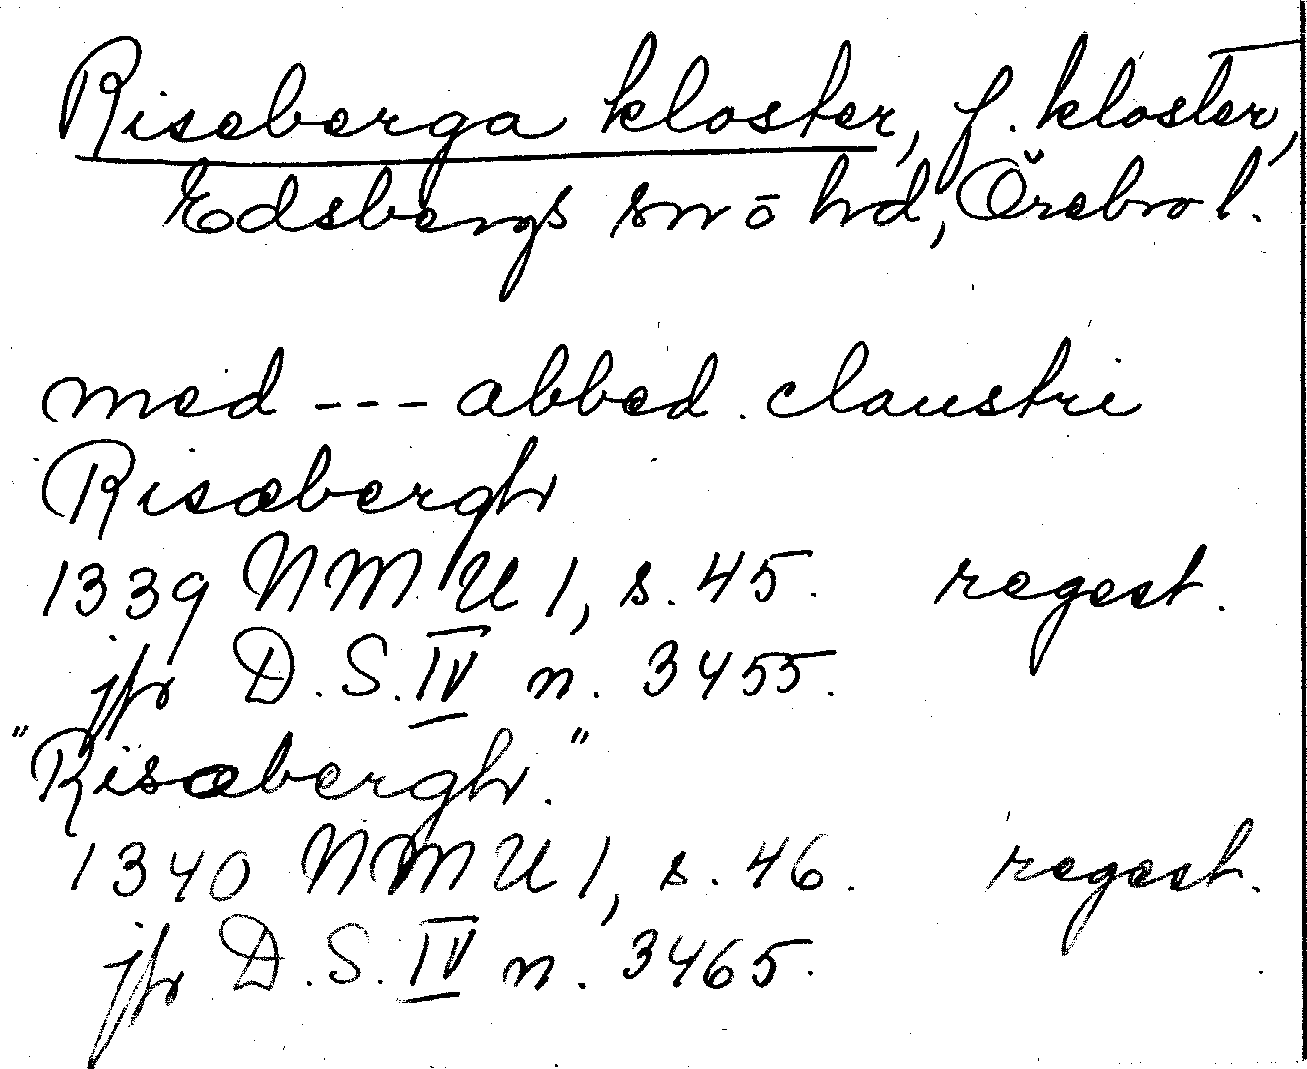 Riseberga kloster, f. kloster,
Edsbergs sn o hd, Örebro l.
med --- abbed. claustri
Risæbergh
1339 NMU 1, s. 45. regest.
jfr D.S. IV n. 3455.
"Risæbergh."
1340 NMU 1, s. 46. regest.
jfr D.S. IV n. 3465.